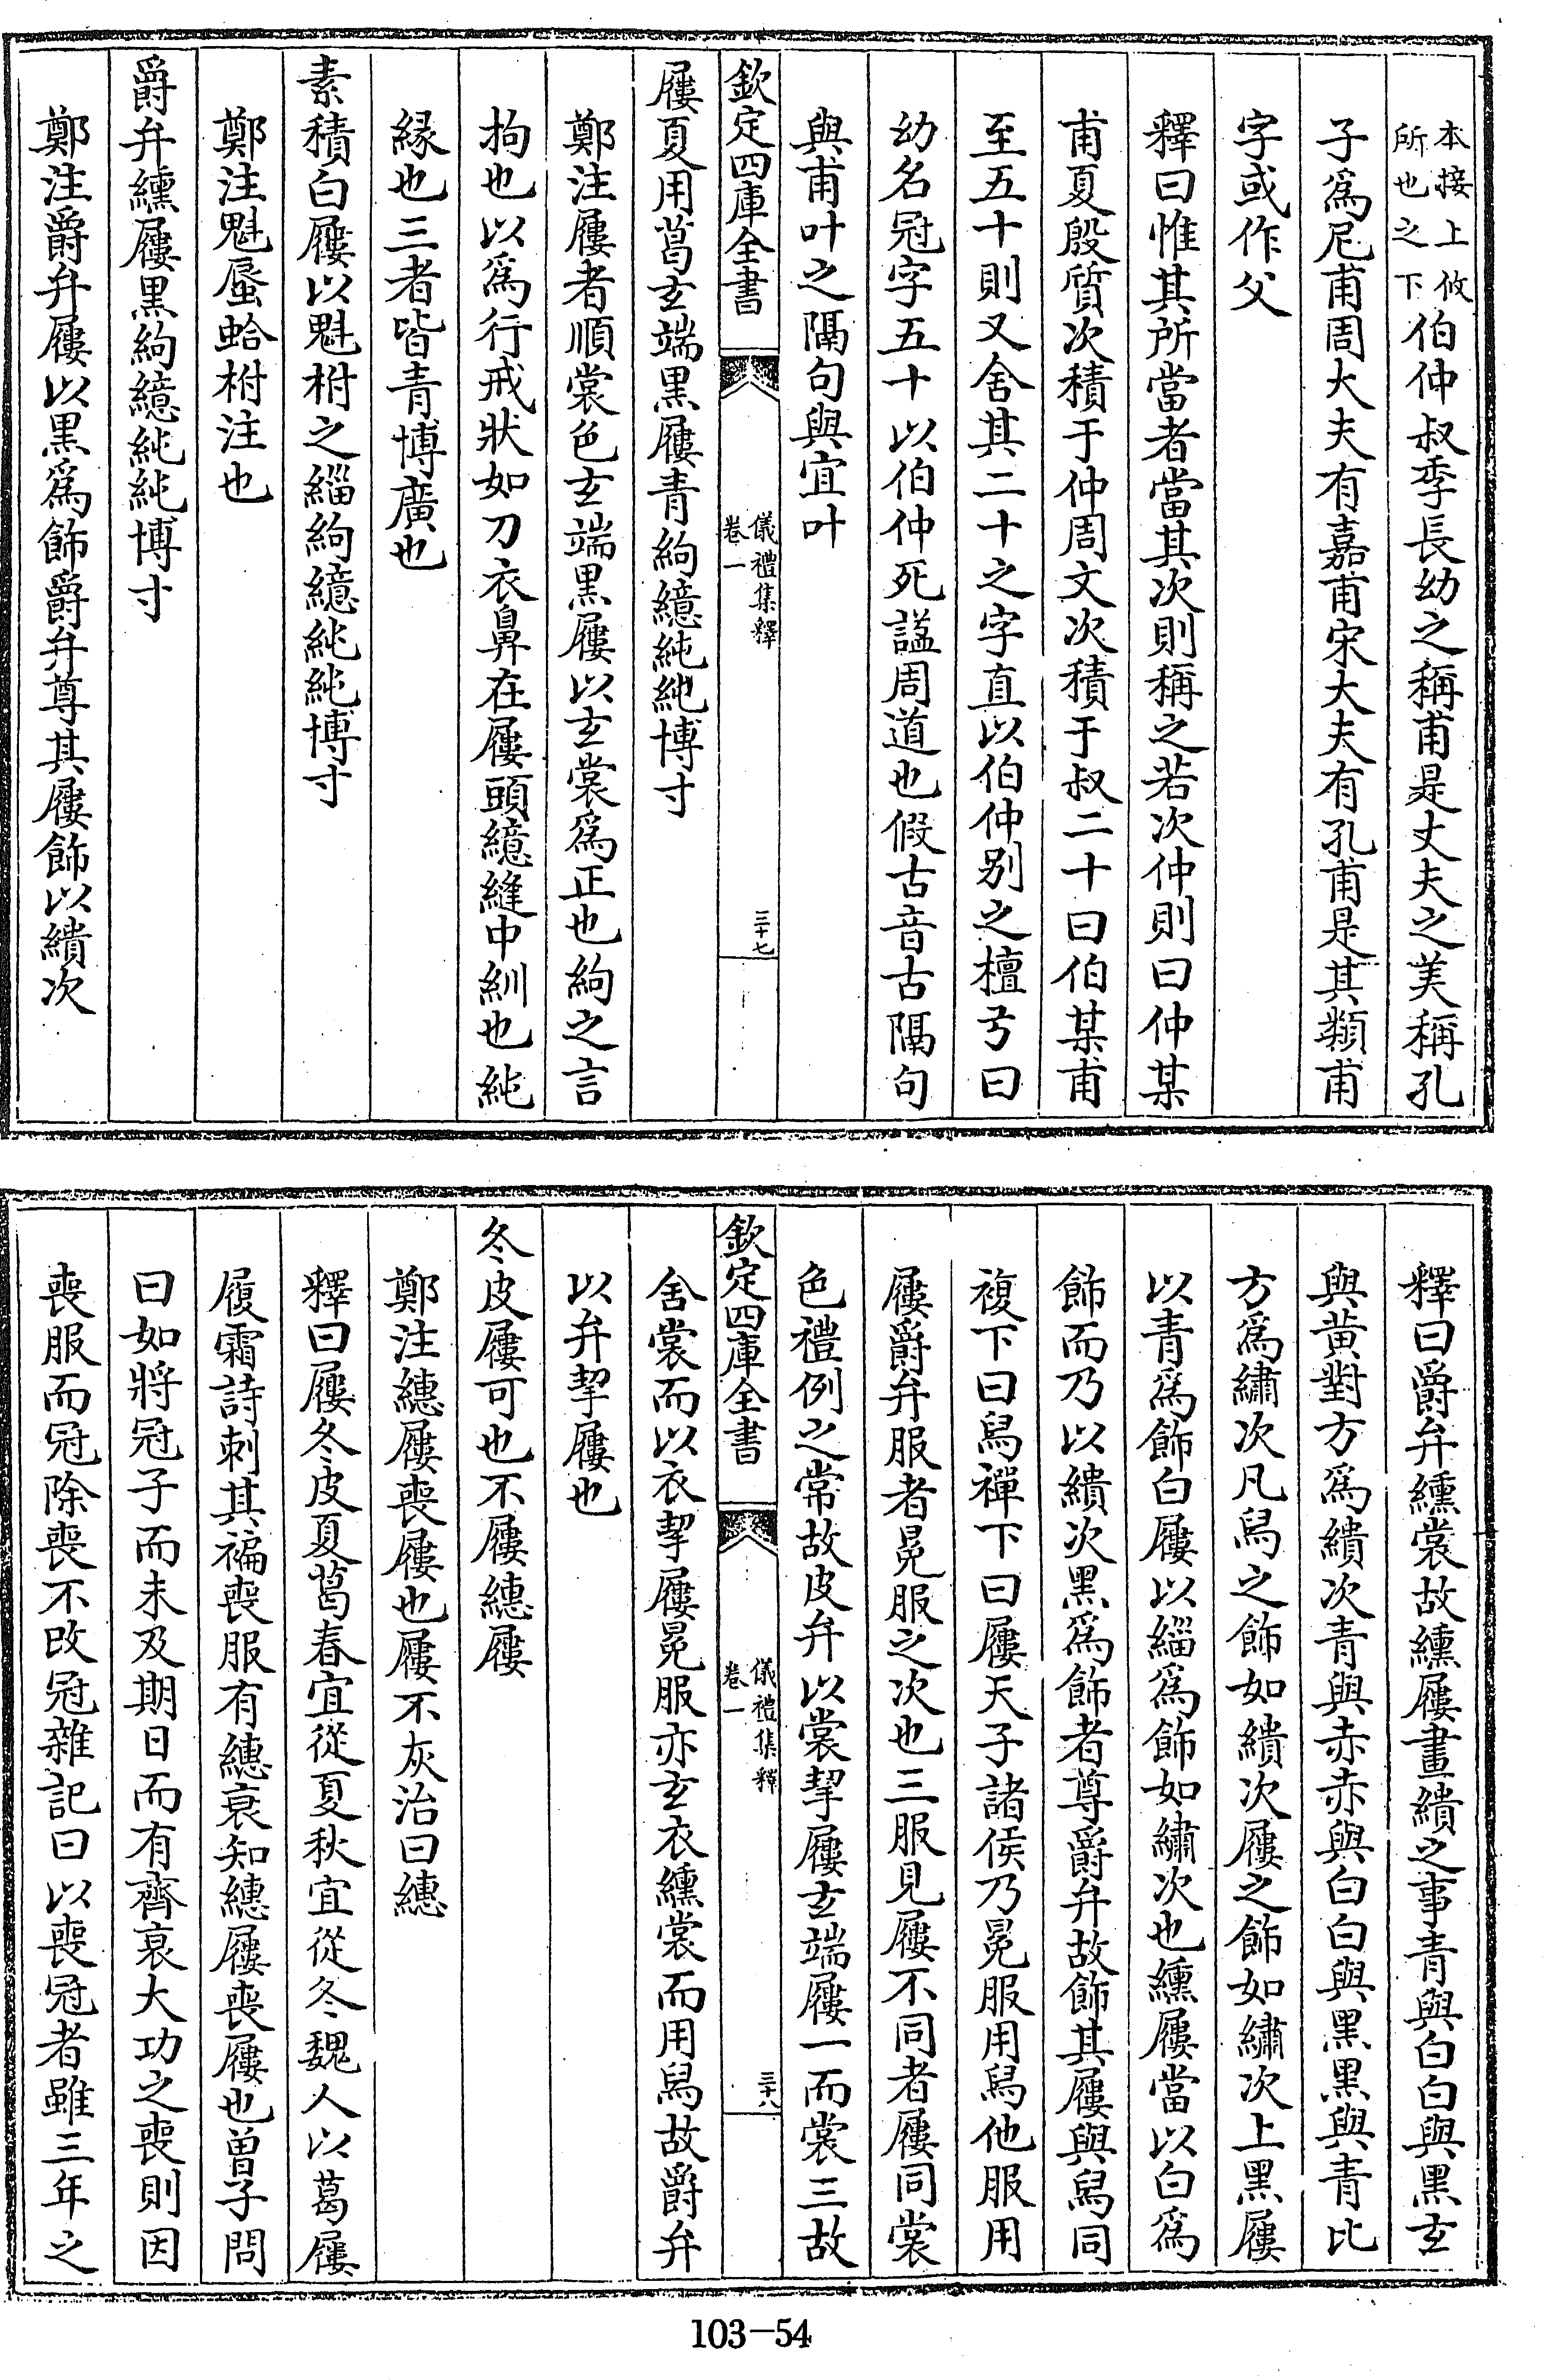 本接上攸
所也之下伯仲叔季長幼之稱甫是丈夫之美稱孔
子爲尼甫周大夫有嘉甫宋大夫有孔甫是其類甫
字或作父
釋曰惟其所當者當其次則稱之若次仲則曰仲某
甫夏殷質次積于仲周文次積于叔二十曰伯某甫
至五十則又舍其二十之字直以伯仲别之檀弓曰
幼名冠字五十以伯仲死謚周道也假古音古隔句
與甫叶之隔句與宜叶
欽定四庫全書
儀禮集釋
卷一
三十七
屨夏用葛玄端黑屨青絇繶純純博寸
鄭注屨者順裳色玄端黑屨以玄裳爲正也絇之言
拘也以爲行戒狀如刀衣鼻在屨頭繶縫中紃也純
緣也三者皆青博廣也
素積白屨以魁柎之緇絇繶純純博寸
鄭注魁蜃蛤柎注也
爵弁纁屨黑絇繶純純博寸
鄭注爵弁屨以黑爲飾爵弁尊其屨飾以繢次
釋曰爵弁纁裳故纁屨畫繢之事青與白白與黑玄
與黄對方爲繢次青與赤赤與白白與黑黑與青比
方爲繡次凡舄之飾如繢次屨之飾如繡次上黑屨
以青爲飾白屨以緇爲飾如繡次也纁屨當以白爲
飾而乃以繢次黑爲飾者尊爵弁故飾其屨與舄同
複下曰舄禪下曰屨天子諸侯乃冕服用舄他服用
屨爵弁服者冕服之次也三服見屨不同者屨同裳
色禮例之常故皮弁以裳挈屨玄端屨一而裳三故
欽定四庫全書
儀禮集釋
卷一
三十八
舍裳而以衣挈屨冕服亦玄衣纁裳而用舄故爵弁
以弁挈屨也
冬皮屨可也不屨繐屨
鄭注繐屨喪屨也屨不灰治曰繐
釋曰屨冬皮夏葛春宜從夏秋宜從冬魏人以葛屨
履霜詩刺其褊喪服有繐衰知繐屨喪屨也曽子問
曰如將冠子而未及期日而有齊衰大功之喪則因
喪服而冠除喪不改冠雜記曰以喪冠者雖三年之
103-54